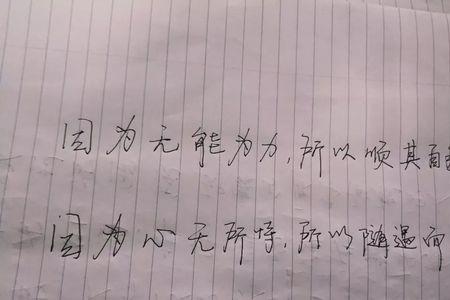 因为无能为力,所以顺其自
因为心无所恃,所以随遇而